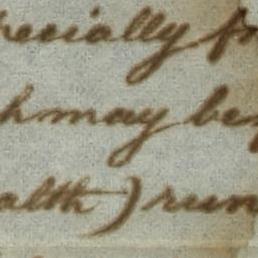 pecially fr
h may be
alth) run